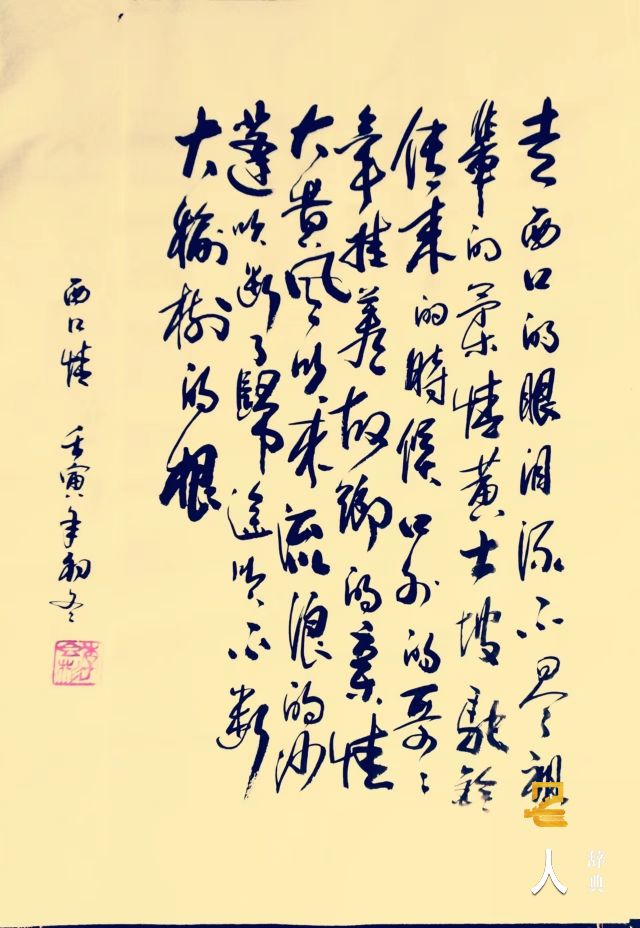 走西口的眼泪流不尽祖
辈的柔情黄土坡駝鈴
传来的時候口外的哥々
牵挂着故鄉的亲情
大黄风吹来流浪的沙
蓬吹断了歸途吹不断
大榆树的根
西口情 壬寅年初冬
人
辞典